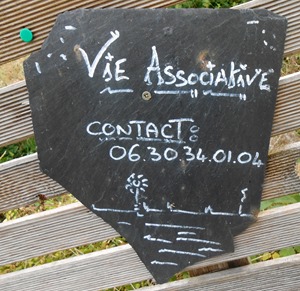 Vie Associative
CONTACT:
06.30.34.01.04